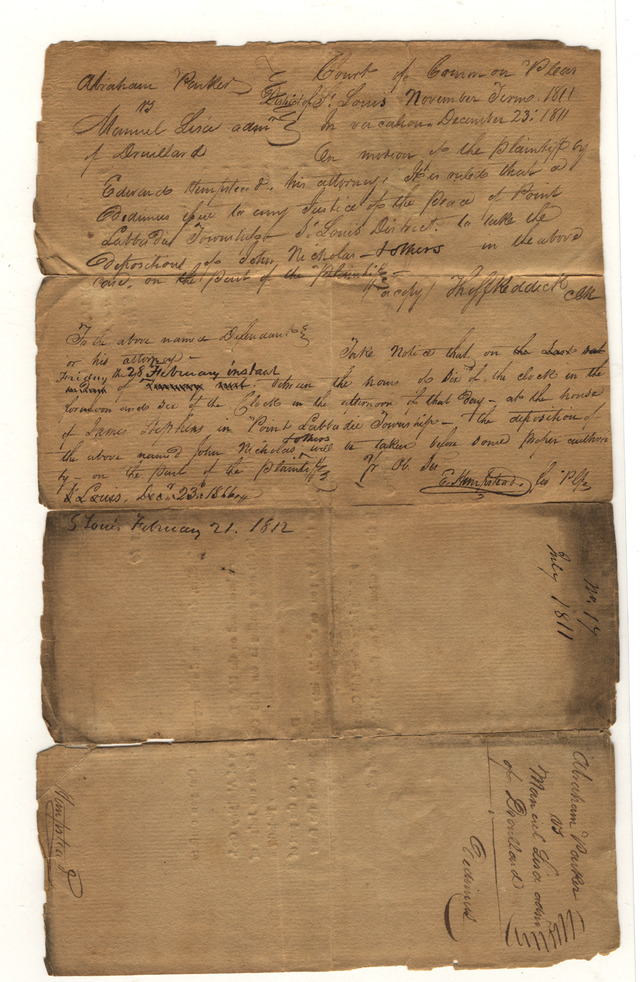 Abraham Parker
vs
Manuel Lisa admr
of Druillard
Court of Common Pleas
District of St. Louis November Term. 1811
In vacation December 23d 1811
On motion of the Plaintiff by
Edward Hempstead, his attorney, It is ruled that a
Dedimus issue to any Justice of the Peace of Point
Labbadee Township St Louis District. to take the
Depositions of John Nicholas & others in the above
case, on the part of the Plaintiff
(a copy) Thos F Reddick Clk
To the above named Defendant
or his attorney
Take Notice that, on the
Friday the 28 February instant
between the hours of Six of the clock in the
forenoon and Six of the Clock in the afternoon of that Day - at the house
of James Stephens in Point Labbadee Township - the deposition of
the above named John Nicholas & others will be taken before some proper authori
ty on the part of the Plaintiff
Yr Ob. Ser
St Louis, Decr 23d
E. Hempstead, for Plff
St Louis February 21. 1812
No. 17
July 1811
Abraham Parker
vs
Manuel Lisa admr
of Druillard
Dedimus
Hempstead